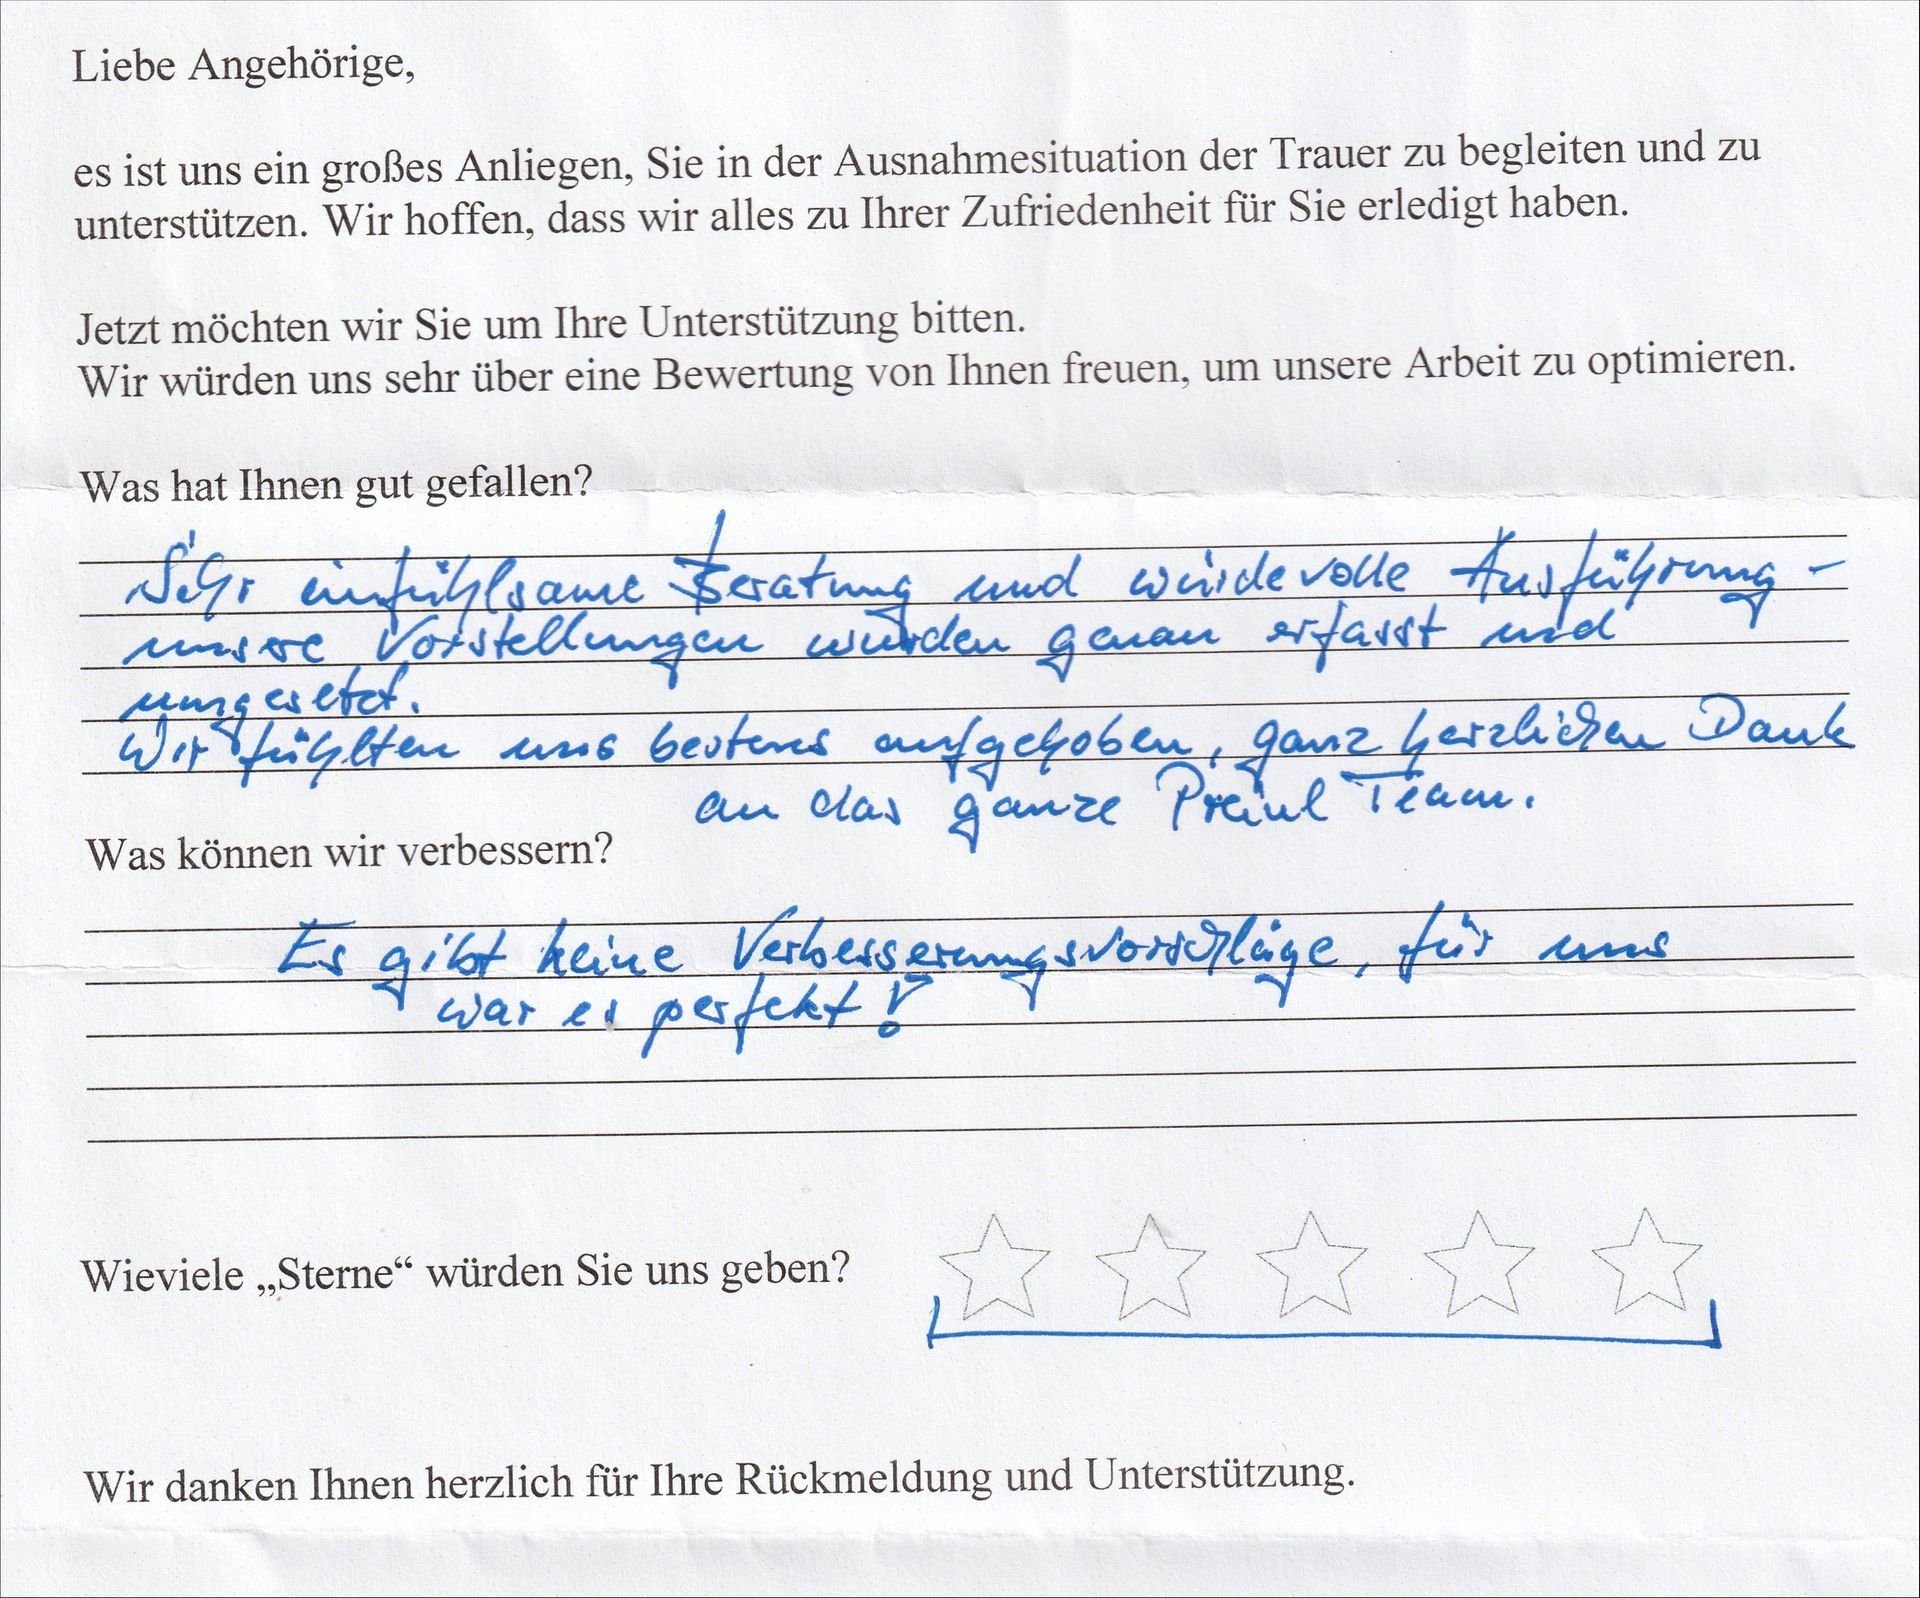 Liebe Angehörige,
es ist uns ein großes Anliegen, Sie in der Ausnahmesituation der Trauer zu begleiten und zu
unterstützen. Wir hoffen, dass wir alles zu Ihrer Zufriedenheit für Sie erledigt haben.
Jetzt möchten wir Sie um Ihre Unterstützung bitten.
Wir würden uns sehr über eine Bewertung von Ihnen freuen, um unsere Arbeit zu optimieren.
Was hat Ihnen gut gefallen?
Sehr einfühlsame Beratung und würdevolle Ausführung –
unsere Vorstellungen wurden genau erfasst und
umgesetzt.
Wir fühlten uns bestens aufgehoben, ganz herzlichen Dank
an das ganze Team.
Was können wir verbessern?
Es gibt keine Verbesserungsvorschläge, für uns
war es perfekt!
Wieviele „Sterne“ würden Sie uns geben?
Wir danken Ihnen herzlich für Ihre Rückmeldung und Unterstützung.